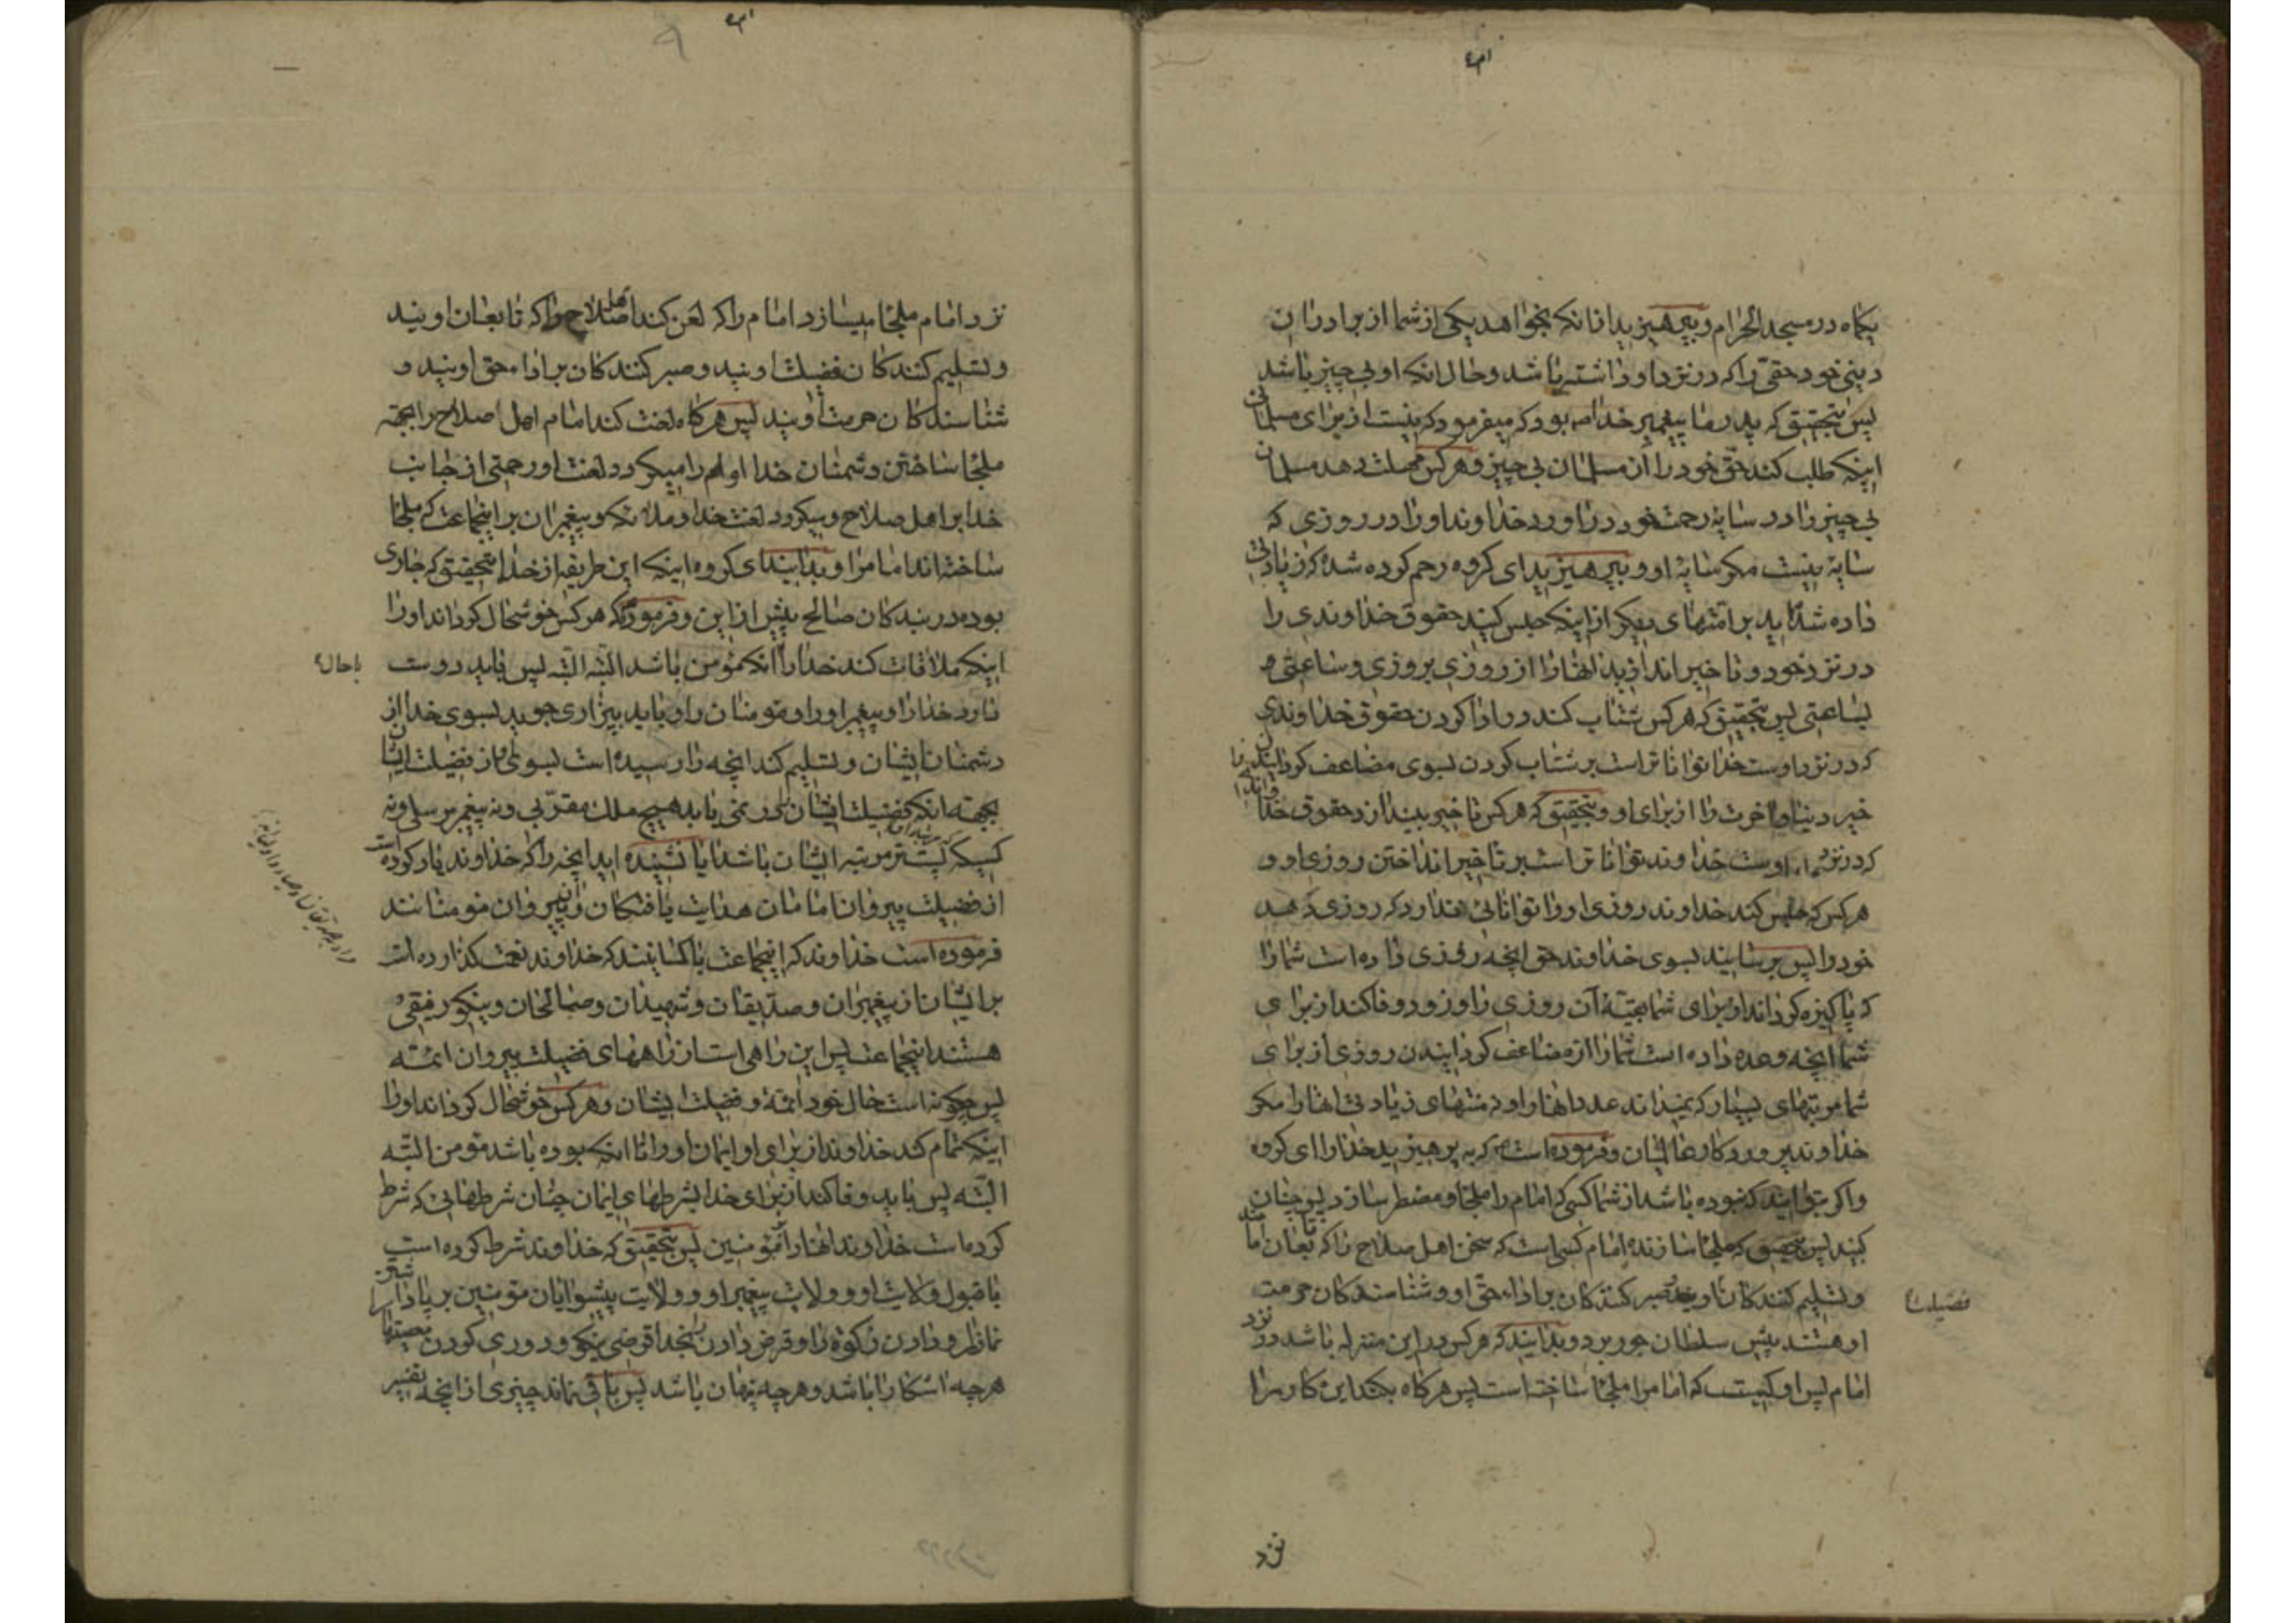 یکماه در مسجد الحرام و بپرهیزید از انکه بخواهد یکی از شما از برادران
دینی خود حقی را که در نزد او داشته باشد و حال انکه او بی چیز باشد
پس بتحقیق که پدر ما پیغمبر خدا ص بود که میفرمود که نیست از برای مسلمانی
اینکه طلب کند حق خود را از مسلمان بی چیز و هر کس مهلت دهد مسلمان
بی چیز را در سایهٔ رحمت خود در اورد خداوند او را در روزی که
سایهٔ نیست مکر سایهٔ او و بپرهیزید ای کروه رحم کرده شده که زیادتی
داده شده اید بر امتهای دیکر از اینکه حبس کنید حقوق خداوندی را
در نزد خود و تاخیر اندازید انها را از روزی بروزی و ساعتی
بساعتی پس بتحقیق که هر کس شتاب کند در ادا کردن حقوق خداوندی
که در نزد اوست خدا تواناتر است بر شتاب کردن بسوی مضاعف کردانیدن
خیر دنیا و اخرت را از برای او و بتحقیق که هر کس تاخیر بیندازد حقوق خدا
که در نزد اوست خداوند تواناتر است بر تاخیر انداختن روزی او و
هر کس که حبس کند خداوند روزی او را توانائی ندارد که روزی دهد
خود را پس برسانید بسوی خداوند حق انچه روزی داده است شما را
که پاکیزه کرداند از برای شما بقیّهٔ آن روزی را و زود وفا کند از برای
شما انچه وعده داده است شما را از مضاعف کردانیدن روزی از برای
شما مرتبهای بسیار که نمیداند عدد انها را و نه منتهای زیادتی انها را مکر
خداوند پروردکار عالمیان و فرموده است که بپرهیزید خدا را ای کروه
و اکر بتوانید که نبوده باشد از شما کسی که امام را ملجا و مضطر سازد پس چنان
کنید پس بتحقیق که ملجا سازندهٔ امام کسی است که سخن اهل صلاح را که تابعان امامند
و تسلیم کنندکان و صبر کنندکان بر اداء حق او و شناسندکان حرمت
فضیلت
او هستند پیش سلطان جور برد و بدانید که هر کس در این منزله باشد در نزد
امام پس او کسیست که امام را ملجا ساخته است پس هرکاه بکند این کار را
نزد
نزد امام ملجا میسازد امام را که لعن کند اهل صلاح را که تابعان اویند
و تسلیم کنندکان فضیلت اویند و صبر کنندکان بر اداء حق اویند و
شناسندکان حرمت اویند پس هرکاه لعنت کند امام اهل صلاح را بجهة
ملجا ساختن دشمنان خدا او را میکردد لعنت او رحمتی از جانب
خدا بر اهل صلاح و میکردد لعنت خدا و ملائکه و پیغمبران بر اینجماعت که ملجا
ساخته اند امام را و بدانید ای کروه اینکه این طریقه از خدا بتحقیق که جاری
بوده در بندکان صالح پیش از این و فرمود که هر کس خوشحال کرداند او را
اینکه ملاقات کند خدا را انکه مؤمن باشد البتّه البتّه پس باید دوست
با حال
دارد خدا را و پیغمبر او را و مومنان را و باید بیزاری جوید بسوی خدا از
دشمنان ایشان و تسلیم کند انچه را رسیده است بسوی او از فضیلت ایشان
بجهة انکه فضیلت ایشان را در نمی یابد هیچ ملک مقرّبی و نه پیغمبر مرسلی و نه
کسیکه پستتر مرتبه ایشان باشد ایا نشنیده اید انچه را که خداوند یاد کرده است
از فضیلت پیروان امامان هدایت یافتکان و پیروان مومنانند
فرموده است خداوند که اینجماعت با کسانیند که خداوند نعمت کذارده است
بر ایشان از پیغمبران و صدّیقان و شهیدان و صالحان و نیکو رفیقی
هستند اینجماعت پس این راهی است از راههای فضیلت پیروان ائمّه
پس چکونه است حال خود ائمّه و فضیلت ایشان و هر کس خوشحال کرداند او را
اینکه تمام کند خداوند از برای او ایمان او را تا انکه بوده باشد مؤمن البتّه
البتّه پس باید وفا کند از برای خدا بشرطهای ایمان چنان شرطهائی که شرط
کرده است خداوند انها را بر مؤمنین پس بتحقیق که خداوند شرط کرده است
با قبول ولایت او و ولایت پیغمبر او و ولایت پیشوایان مؤمنین بر پا داشتن
نماز را و دادن زکوة را و قرض دادن بخدا قرضی نیکو و دوری کردن
هر چه اشکارا باشد و هر چه پنهان باشد پس باقی نماند چیزی از انچه تفسیر